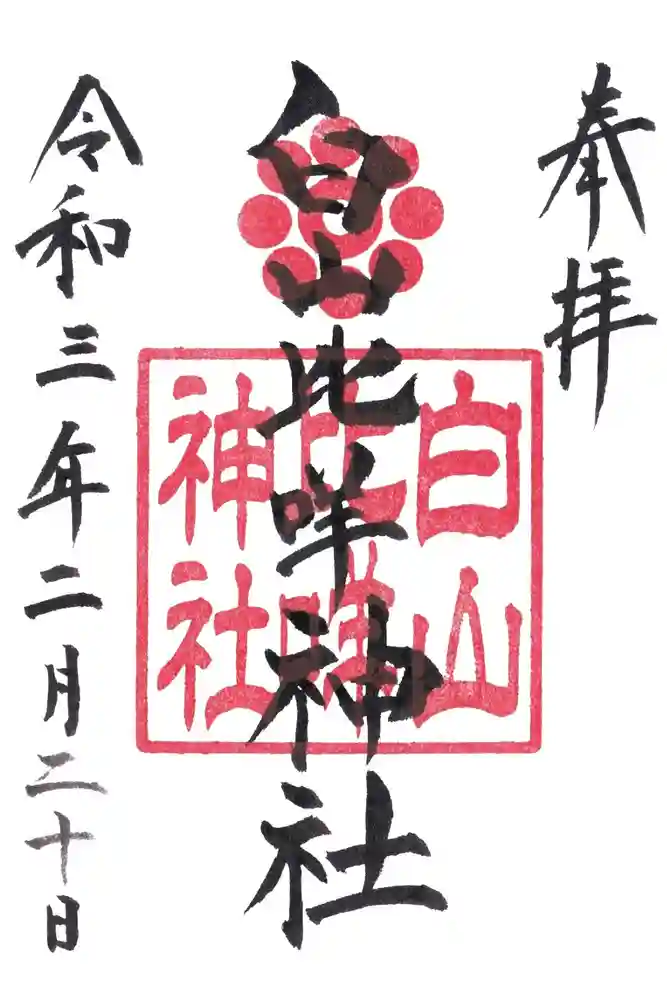 奉拝
白山比咩神社
白山比咩神社
令和三年二月二十日